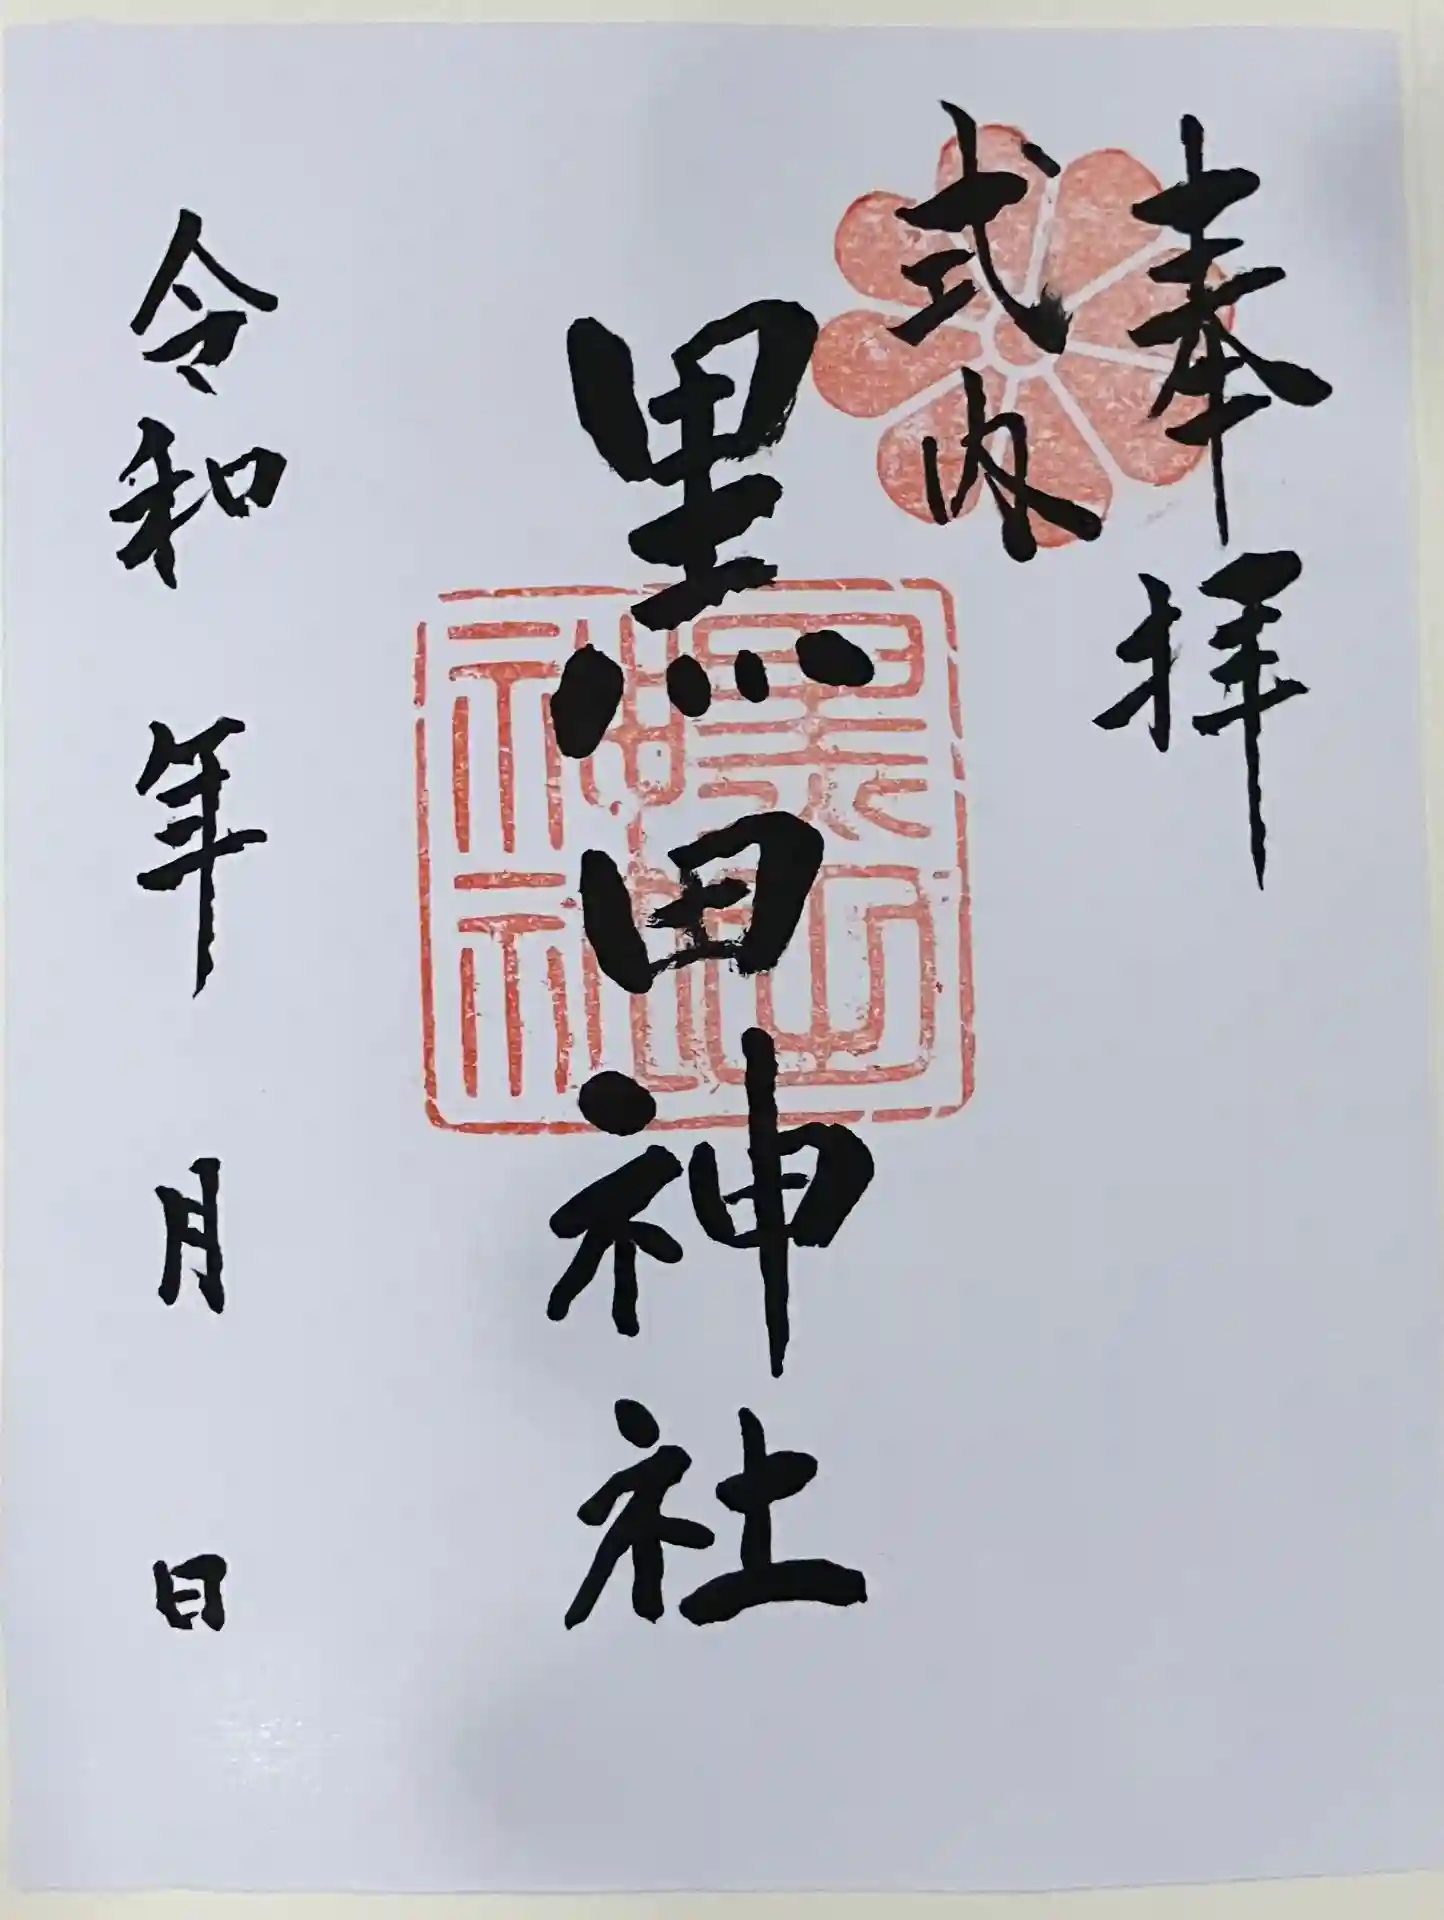 奉拝
式内
黒田神社
黒田神社
令和 年 月 日